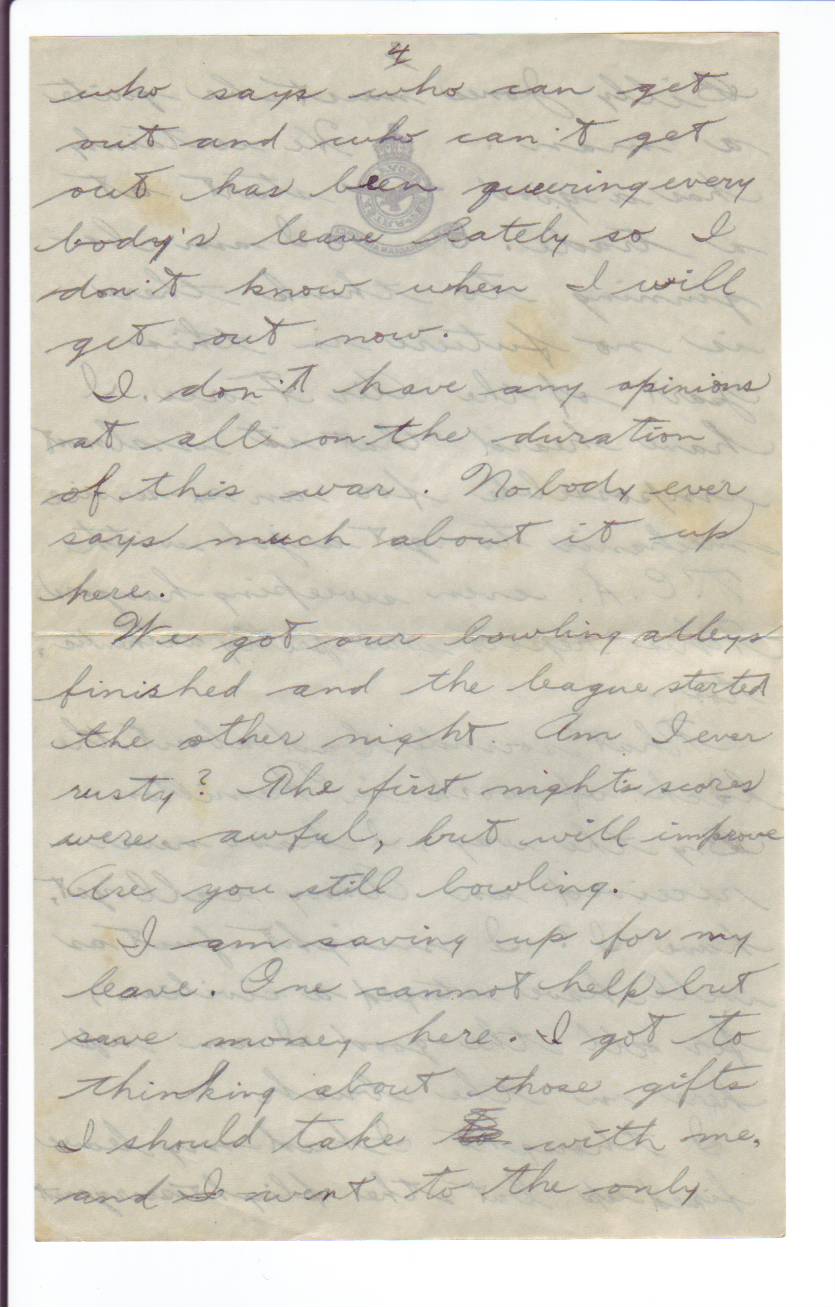 4
who says who can get
out and who can't get
out has been queering every
body's leave lately so I
don't know when I will
get out now.
I don't have any opinions
at all on the duration
of this war. Nobody ever
says much about it up
here.
We got our bowling alleys
finished and the league started
the other night. Am I ever
rusty? The first night's scores
were awful, but will improve
Are you still bowling.
I am saving up for my
leave. One cannot help but
save money here. I got to
thinking about those gifts
I should take with me,
and I went to the only